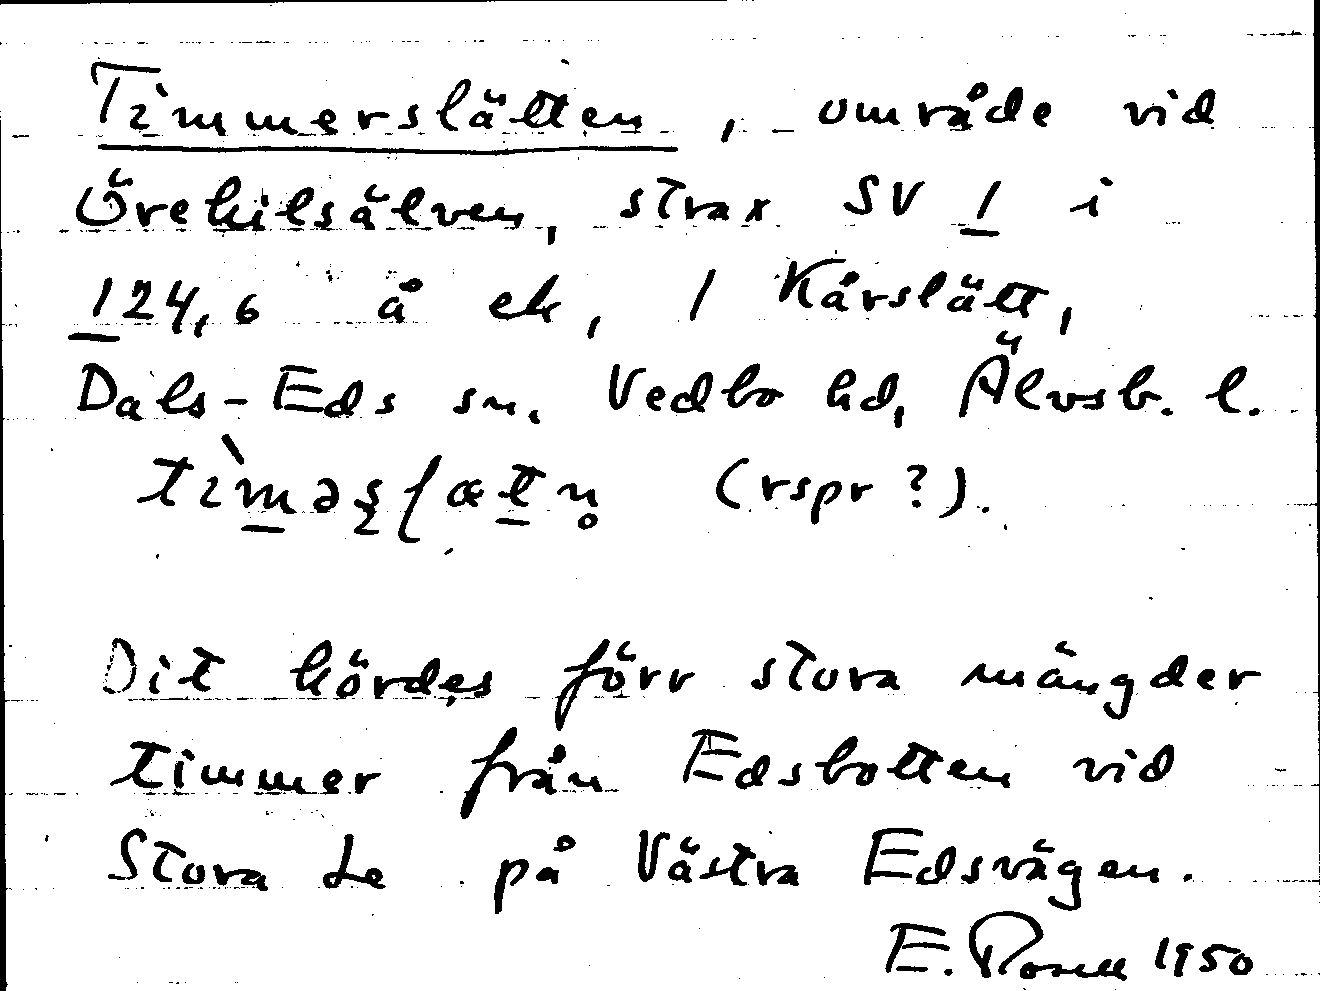 Timmerslätten, område vid
Örekilsälven, strax SV 1 i
124,6 å ek, 1 Kårslätt,
Dals-Eds sn. Vedbo hd, Älvsb. l.
(rspr?).
Dit kördes förr stora mängder
timmer från Edsbotten vid
Stora Le på Västra Edsvägen.
E. Rosell 1950